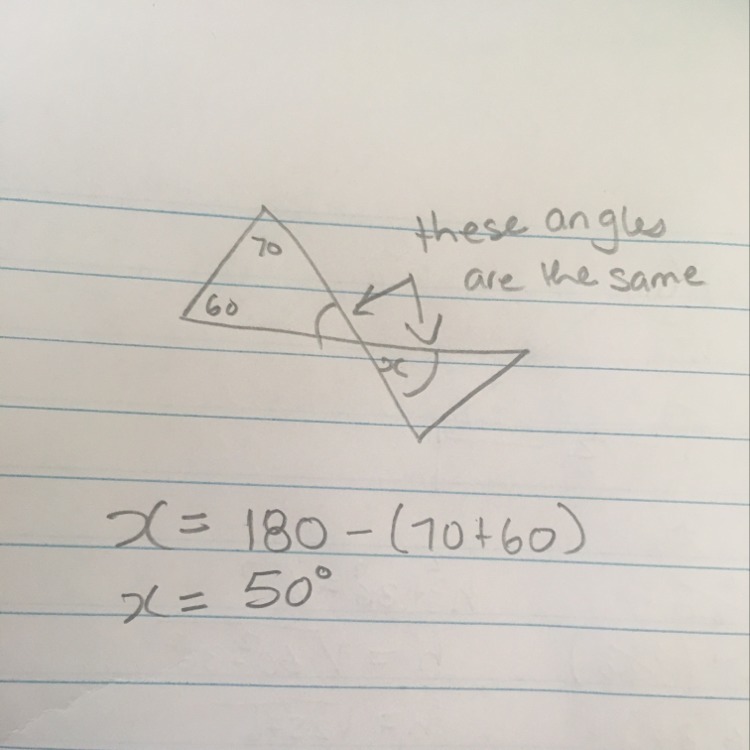 these angles
are the same
70
60
x
x = 180 - (70+60)
x = 50°